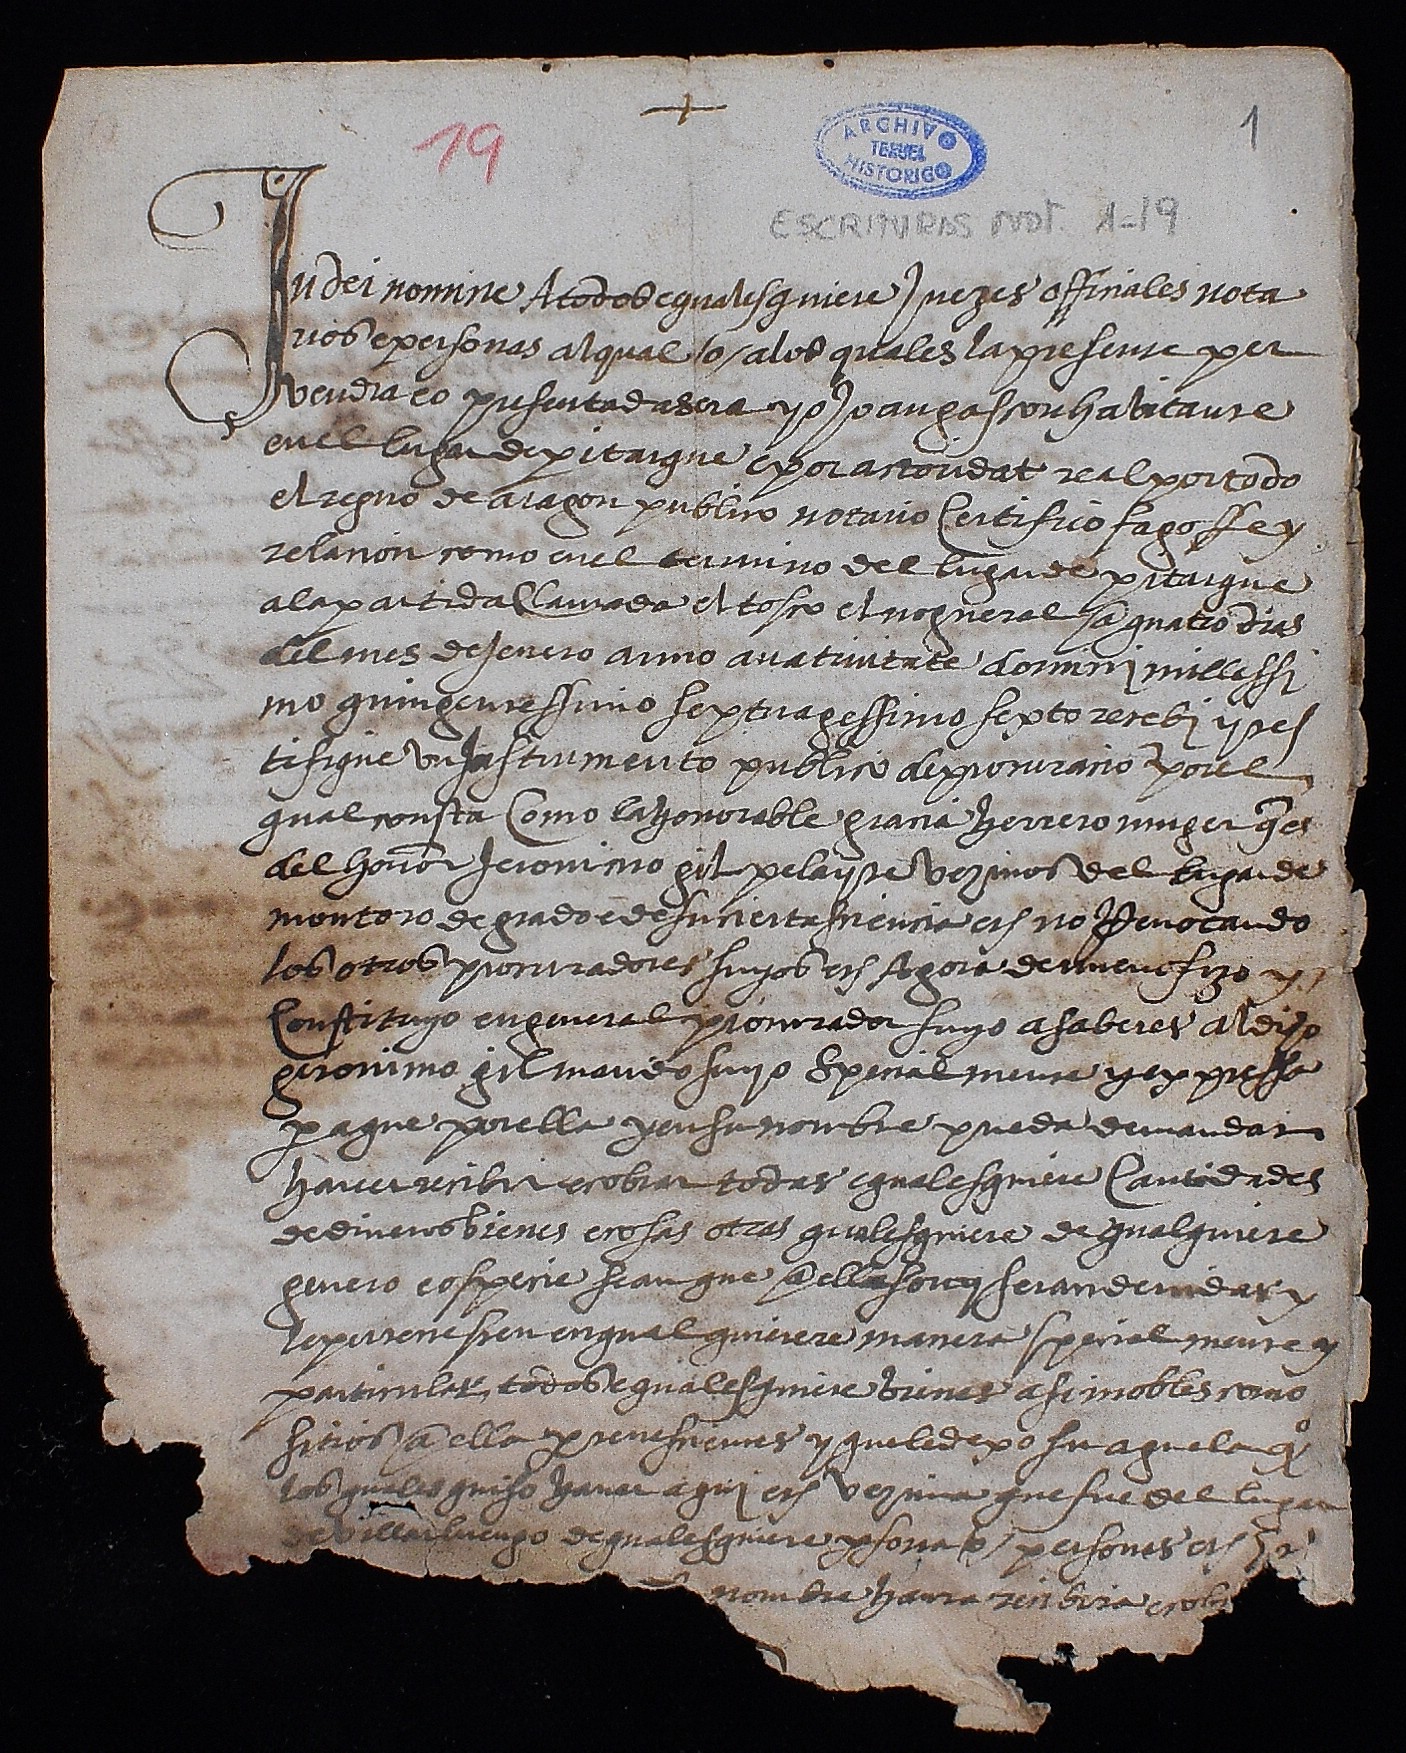 19
ARCHIVO
TERUEL
HISTORICO
1
ESCRITURAS NOT. 1-19
In dei nomine A todos e qualesquiere Juezes officiales nota
rios e personas al qual /o/ a los quales la presente per
vendra e o presentada sera yo Joan gascon habitante
en el lugar de pitarque e por actoridat real por todo
el regno de aragon publico notario Certifico fago ffe y
relacion como en el termino del lugar de pitarque
a la partida llamada el tosco el nogueral a quatro dias
del mes de Jenero anno a nativitate domini millessi
mo quingentessimo septuagessimo septo recebi y tes
tifique un Instrumento publico de procuracio por el
qual consta Como la honorable gracia herrero muger
del honor Jeronimo gil pelayre vezinos del lugar de
montoro de grado e de su cierta sciencia et no Revocando
los otros procuradores suyos et Agora de nuevo fizo y
Constituyo en general procurador suyo a saber es al dicho
geronimo gil marido suyo Specialmente y expressa
paque por ella y en su nombre pueda demandar
haver recibir e cobrar todas e qualesquiere Cantidades
de dineros bienes e cosas otras qualesquiere de qualquiere
genero e o specie sean que a ella son y seran devidas y
le pertenescen en qual quierere manera specialmente y
particular todos e qualesquiere bienes asi mobles como
sitios a ella pertenescientes y que le dexo su aguela
los quales quiso haver aqui et vezina que fue del lugar
de villarluengo de qualesquiere psona o/ personas et
nombre havra recibira